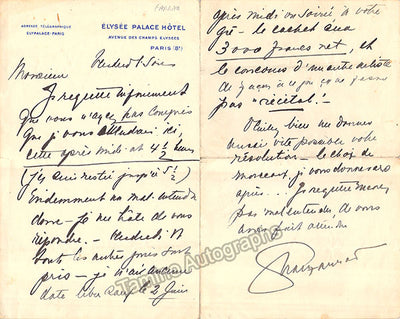 ADRESSE TÉLÉGRAPHIQUE
ELYPALACE-PARIS
ÉLYSÉE PALACE HÔTEL
AVENUE DES CHAMPS ELYSÉES
PARIS (8e)
Vendredi Soir
Monsieur
Je regrette infiniment
que vous n'ayez pas compris
que je vous attendais ici,
cette après midi à 4 1/2 heures
(J'y suis restée jusqu'à 5 1/2)
Evidemment un mal entendu
donc je me hâte de vous
répondre. Vendredi
tous les autres jours sont
pris - je n'ai aucune
date libre sauf le 2 Juin
après midi ou Soirée à votre
gré - le cachet sera
3000 francs net, et
le concours d'un autre artiste
de façon à ce que ça ne fasse
pas "récital".
Veuillez bien me donner
aussi vite possible votre
résolution - le choix de
morceaux, je vous donnerai
après. Je regrette
pas mal entendu de vous
avoir fait attendre
Tamino Autographs